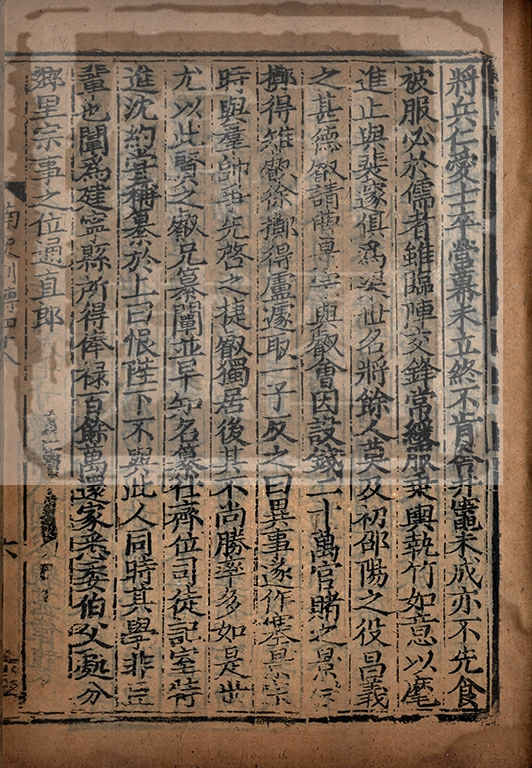 將兵仁愛士卒營幕未立終不肯舍井竈未成亦不先食
被服必於儒者雖臨陣交鋒常緩服乘輿執竹如意以麾
進止與裴邃俱為梁世名將餘人莫及初邵陽之役昌義
之甚德叡請曹景宗與叡會因設錢二十萬官賭之景宗
擲得雉叡徐擲得盧遽取一子反之曰異事遂作塞景宗
時與羣帥爭先啓之捷叡獨居後其不尚勝率多如是世
尤以此賢之叡兄纂闡並早知名纂仕齊位司徒記室特
進沈約嘗稱纂於上曰恨陛下不與此人同時其學非臣
輩也闡為建寧縣所得俸祿百餘萬還家悉委伯父處分
鄉里宗事之位通直郎
南史列傳四八
六